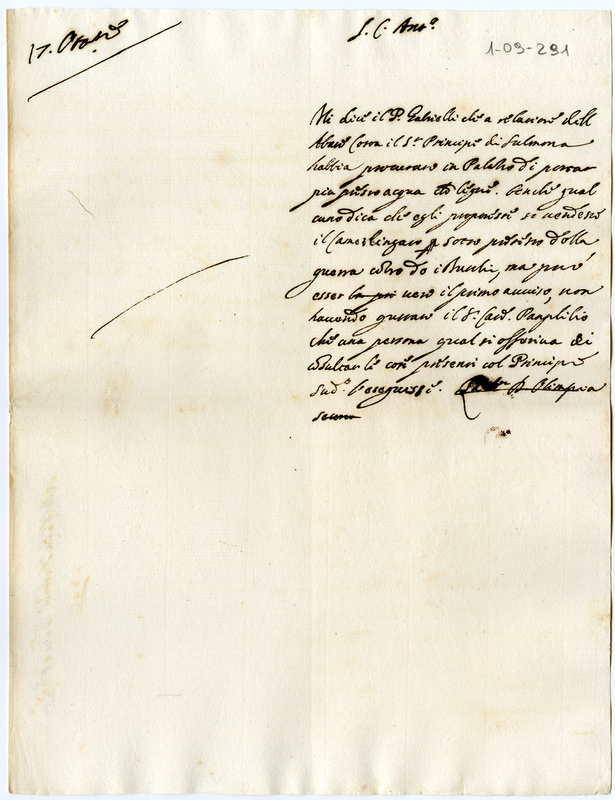 17. Ottobre
S. C. Ant.º
1-09-291
Mi dice il P. Gabrielli che a relatione dell
Abate Corra il S.r Principe di Sulmona
habbia procurato in Palazzo di portar
più presto acqua che legne. Perche qual
cuno dica che egli proponesse se vendere
il Camerlingato a sotto pretesto della
guerra contro do i Turchi, ma può
esser la pri vero il primo auuiso, non
hauendo gustato il S. Card. Panfilio
che una persona qual si offeriua di
le cose presenti col Principe
Sud.º l'eseguisse. D. Olimpia